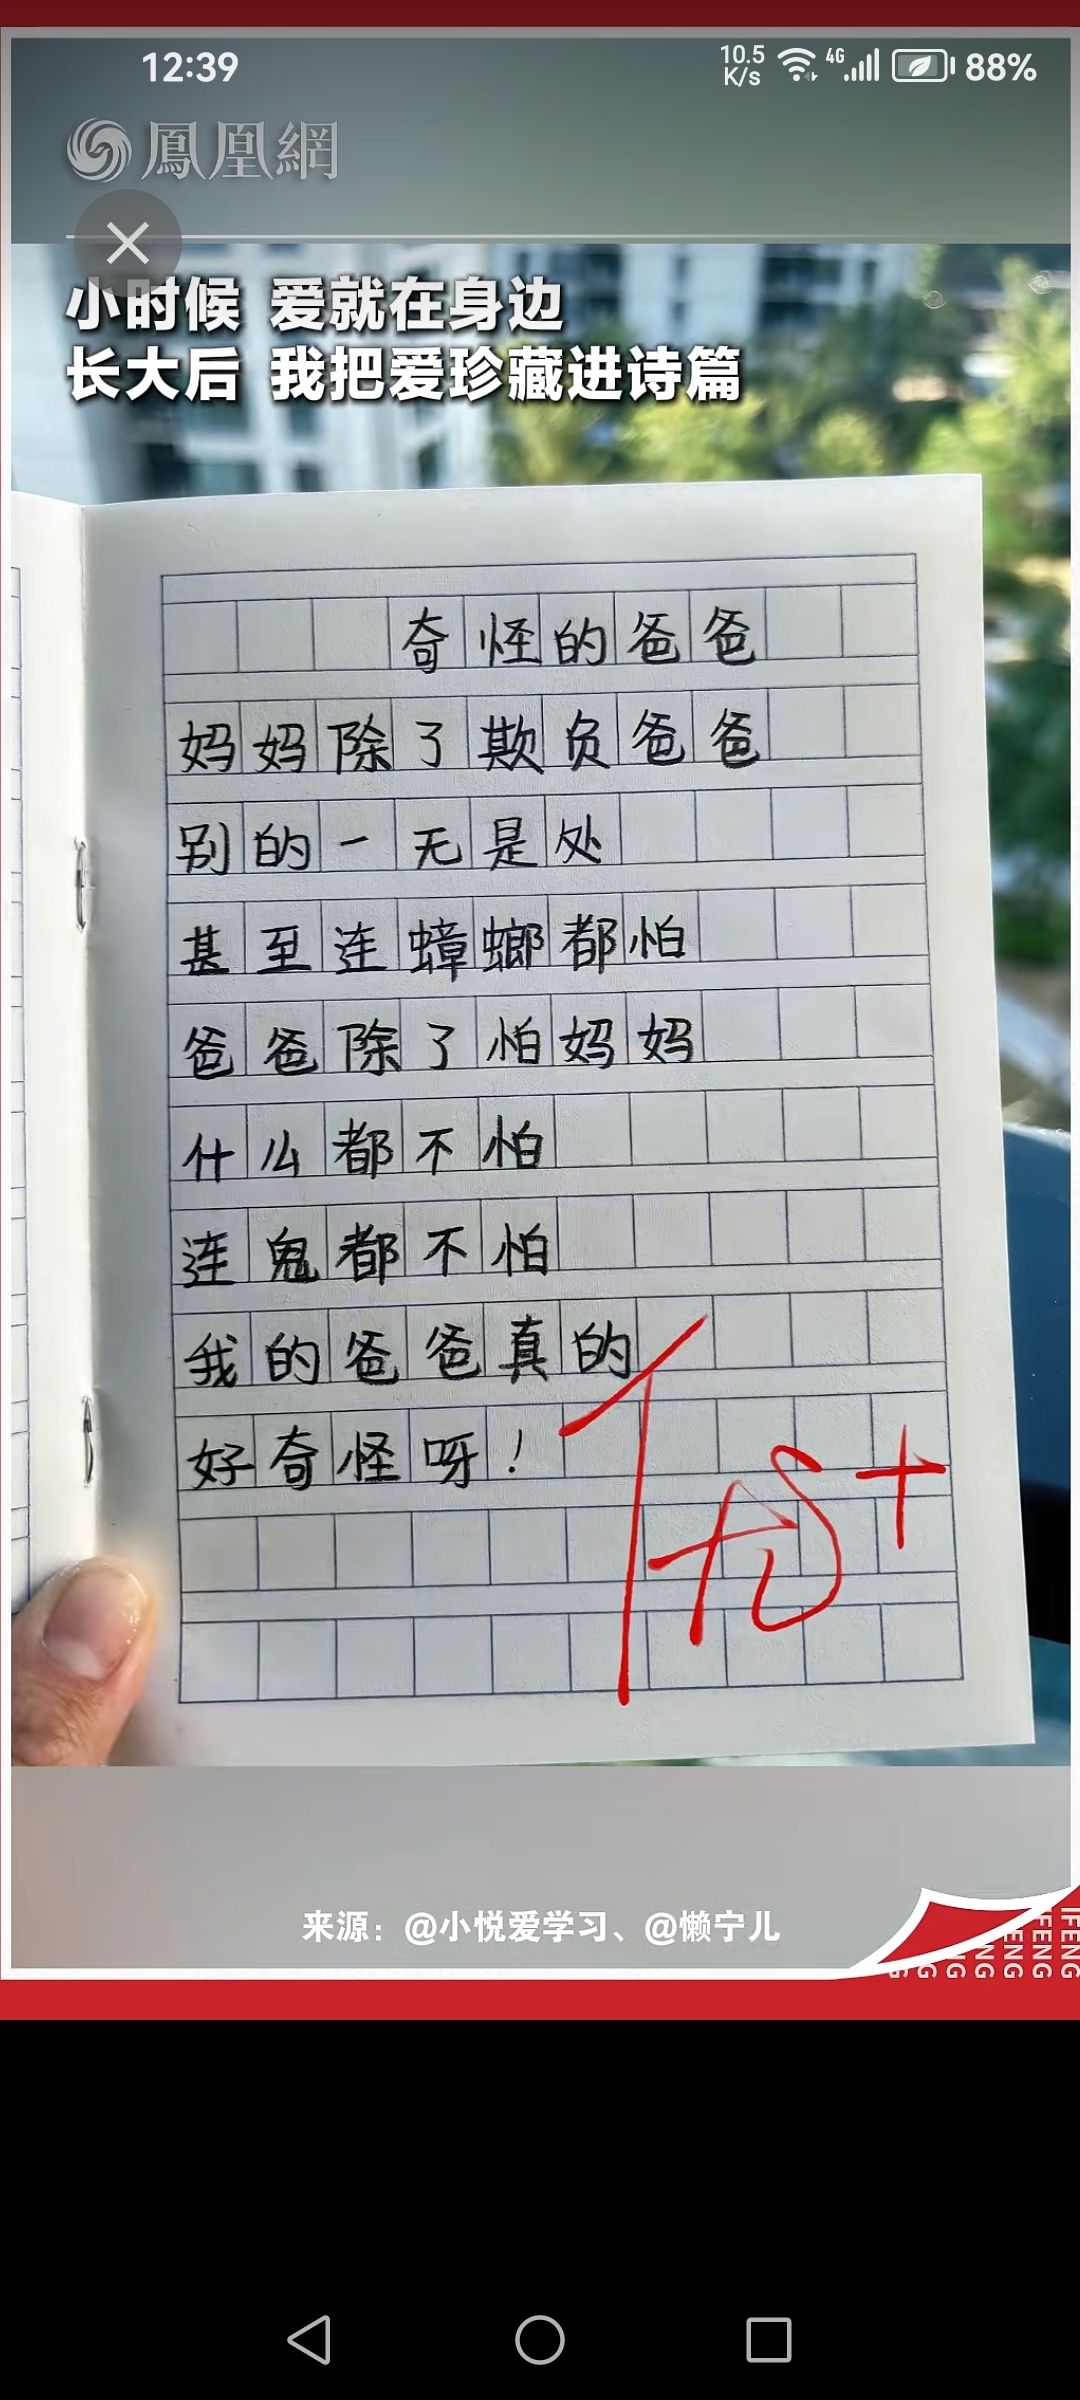 12:39
10.5 K/s
4G
88%
鳳凰網
小时候 爱就在身边
长大后 我把爱珍藏进诗篇
奇怪的爸爸
妈妈除了欺负爸爸
别的一无是处
甚至连蟑螂都怕
爸爸除了怕妈妈
什么都不怕
连鬼都不怕
我的爸爸真的
好奇怪呀！
优+
来源：@小悦爱学习、@懒宁儿
IFENG
IFENG
ENG
NG
NG
G
G